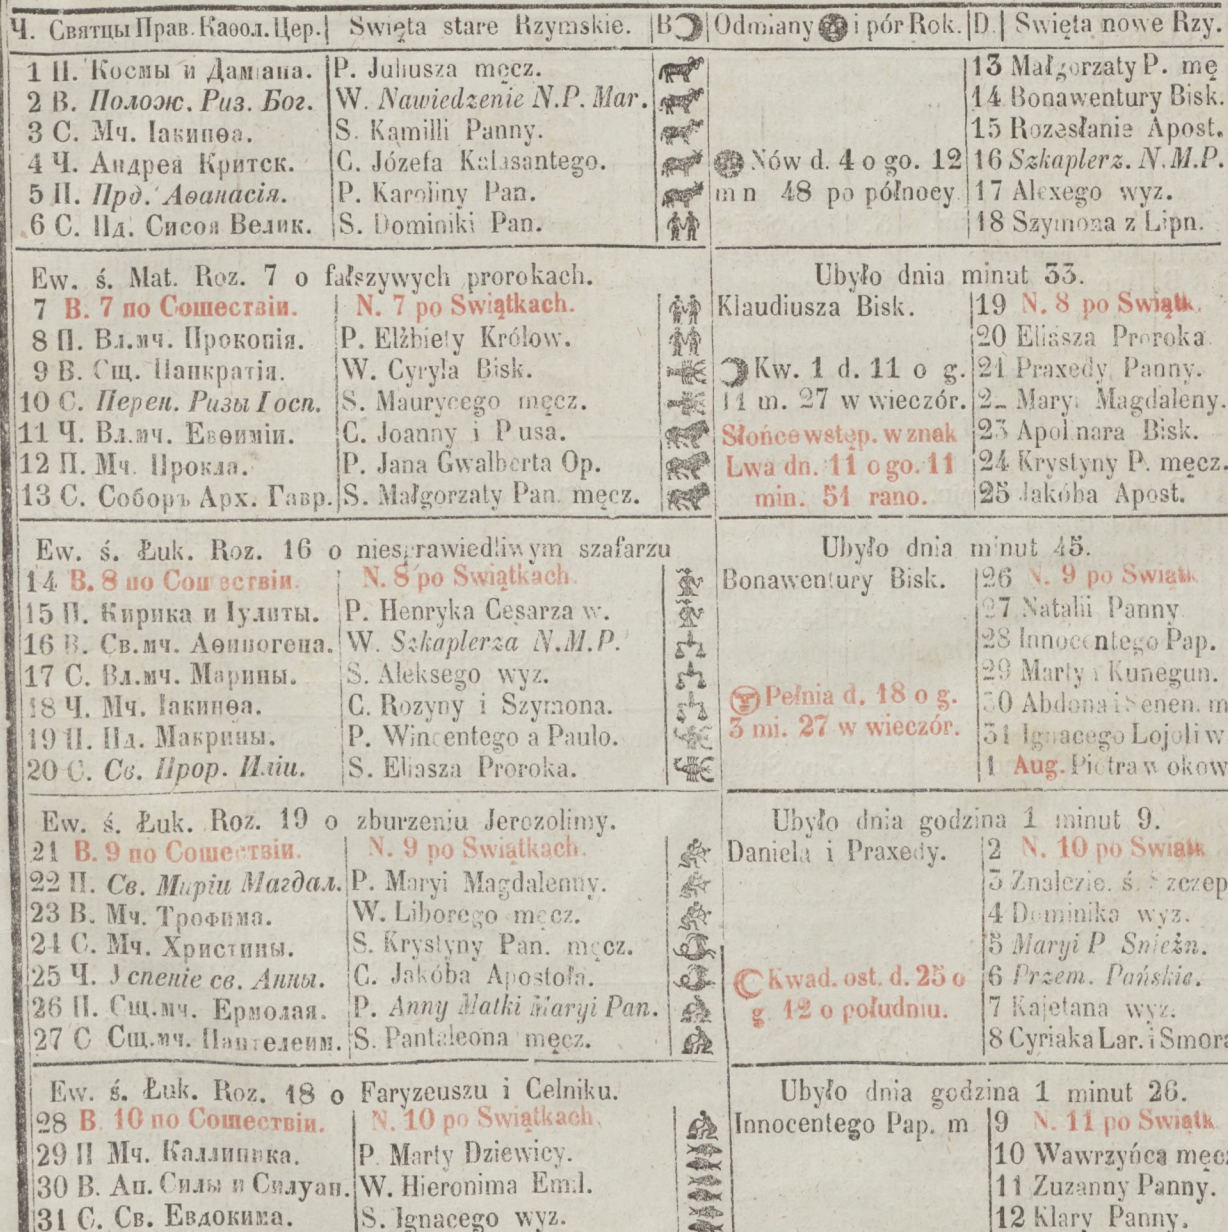 Ч. Святцы Прав. Каѳол. Цер. | Swięta stare Rzymskie. | B | Odmiany i pór Rok. | D. | Swięta nowe Rzy.
1 П. Космы и Даміана. | P. Juliusza męcz. | 13 Małgorzaty P. mę
2 В. Полож. Риз. Бог. | W. Nawiedzenie N.P. Mar. | 14 Bonawentury Bisk.
3 С. Мч. Іакинѳа. | S. Kamilli Panny. | 15 Rozesłanie Apost.
4 Ч. Андрея Критск. | C. Józefa Kalasantego. | Nów d. 4 o go. 12 | 16 Szkaplerz. N.M.P.
5 П. Прд. Аѳанасія. | P. Karoliny Pan. | min 48 po północy | 17 Alexego wyz.
6 С. Пд. Сисоя Велик. | S. Dominiki Pan. | 18 Szymona z Lipn.
Ew. ś. Mat. Roz. 7 o fałszywych prorokach. | Ubyło dnia minut 33.
7 В. 7 по Сошествіи. | N. 7 po Swiątkach. | Klaudiusza Bisk. | 19 N. 8 po Swiątk.
8 П. Вл.мч. Прокопія. | P. Elżbiety Królow. | 20 Eliasza Proroka
9 В. Сщ. Панкратія. | W. Cyryla Bisk. | Kw. 1 d. 11 o g. | 21 Praxedy Panny.
10 С. Перен. Ризы Госп. | S. Maurycego męcz. | 11 m. 27 w wieczór. | 22 Mary. Magdaleny.
11 Ч. Вл.мч. Евѳиміи. | C. Joanny i Piusa. | Słońce wstęp. w znak | 23 Apolinara Bisk.
12 П. Мч. Прокла. | P. Jana Gwalberta Op. | Lwa dn. 11 o go. 11 | 24 Krystyny P. męcz.
13 С. Соборъ Арх. Гавр. | S. Małgorzaty Pan. męcz. | min. 51 rano. | 25 Jakóba Apost.
Ew. ś. Łuk. Roz. 16 o niesprawiedliwym szafarzu | Ubyło dnia minut 45.
14 В. 8 по Сошествіи. | N. 8 po Swiątkach. | Bonawentury Bisk. | 26 N. 9 po Swiątk
15 П. Кирика и Іулиты. | P. Henryka Cesarza w. | 27 Natalii Panny
16 В. Св.мч. Аѳиногена. | W. Szkaplerza N.M.P. | 28 Innocentego Pap.
17 С. Вл.мч. Марины. | S. Aleksego wyz. | 29 Marty i Kunegun.
18 Ч. Мч. Іакинѳа. | C. Rozyny i Szymona. | Pełnia d. 18 o g. | 30 Abdona i Senen. m
19 П. Пд. Макрины. | P. Wincentego a Paulo. | 3 mi. 27 w wieczór. | 31 Ignacego Lojoli w
20 С. Св. Прор. Иліи. | S. Eliasza Proroka. | 1 Aug. Piotra w okow
Ew. ś. Łuk. Roz. 19 o zburzeniu Jerozolimy. | Ubyło dnia godzina 1 minut 9.
21 В. 9 по Сошествіи. | N. 9 po Swiątkach. | Daniela i Praxedy. | 2 N. 10 po Swiątk
22 П. Св. Маріи Магдал. | P. Maryi Magdalenny. | 3 Znalezie. ś. Szczep
23 В. Мч. Трофима. | W. Liborego męcz. | 4 Dominika wyz.
24 С. Мч. Христины. | S. Krystyny Pan. męcz. | 5 Maryi P. Snieżn.
25 Ч. Успеніе св. Анны. | C. Jakóba Apostoła. | Kwad. ost. d. 25 o | 6 Przem. Pańskie.
26 П. Сщ.мч. Ермолая. | P. Anny Matki Maryi Pan. | g. 12 o południu. | 7 Kajetana wyz.
27 С Сщ.мч. Пантелеим. | S. Pantaleona męcz. | 8 Cyriaka Lar. i Smora
Ew. ś. Łuk. Roz. 18 o Faryzeuszu i Celniku. | Ubyło dnia godzina 1 minut 26.
28 В. 10 по Сошествіи. | N. 10 po Swiątkach. | Innocentego Pap. m | 9 N. 11 po Swiątk
29 П Мч. Каллиника. | P. Marty Dziewicy. | 10 Wawrzyńca męcz
30 В. Ап. Силы и Силуан. | W. Hieronima Emil. | 11 Zuzanny Panny.
31 С. Св. Евдокима. | S. Ignacego wyz. | 12 Klary Panny.